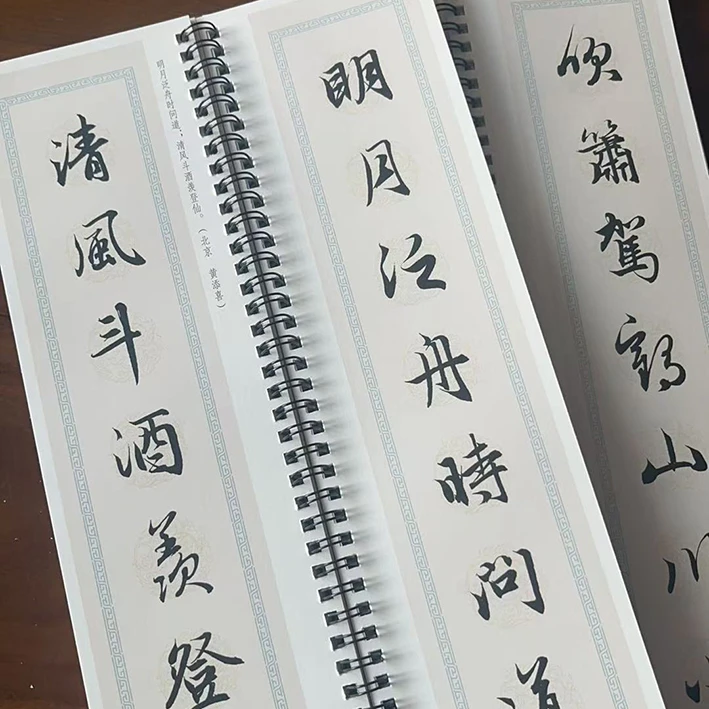 吹簫駕鶴山川
明月泛舟時問道
明月泛舟时问道；清风斗酒羡登仙。（北京 黄添喜）
清風斗酒羨登